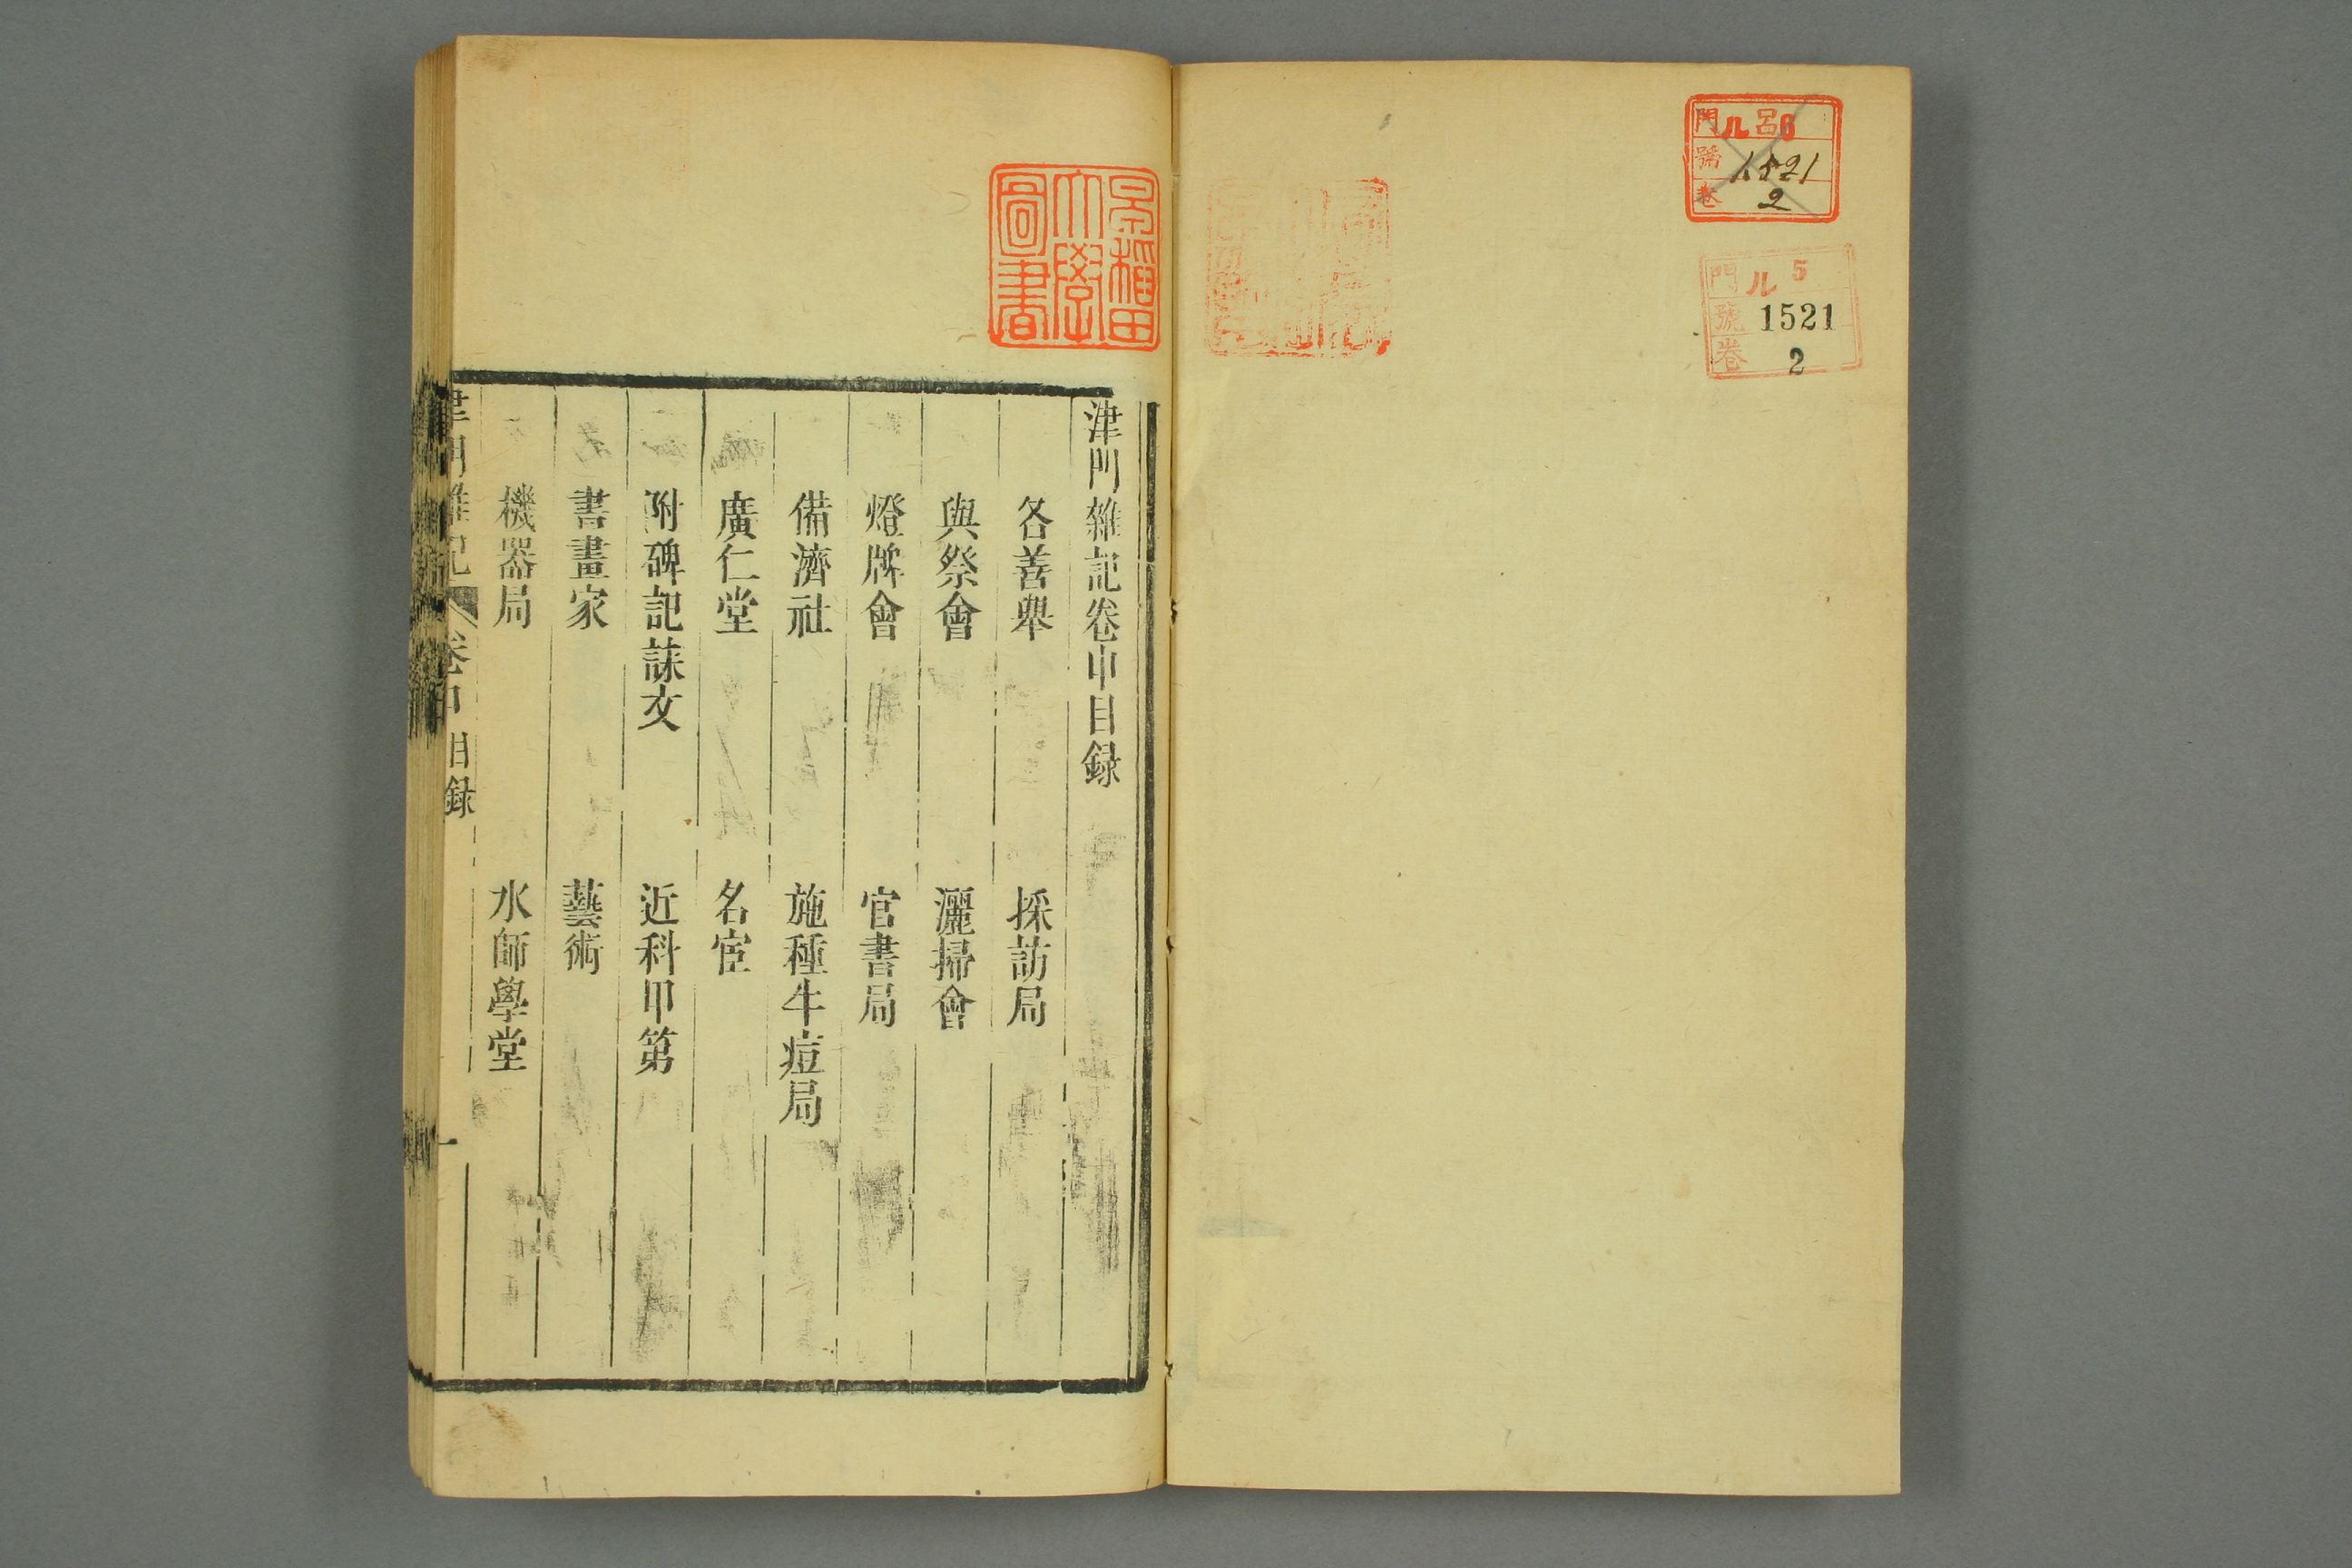 門 ル 呂6
號 1521
卷 2
門 ル 5
號 1521
卷 2
早稻田
大學
圖書
津門雜記卷中目録
各善舉 採訪局
與祭會 灑掃會
燈牌會 官書局
備濟社 施種牛痘局
廣仁堂 名宦
附碑記誄文 近科甲第
書畫家 藝術
機器局 水師學堂
津門雜記 卷中目録 一